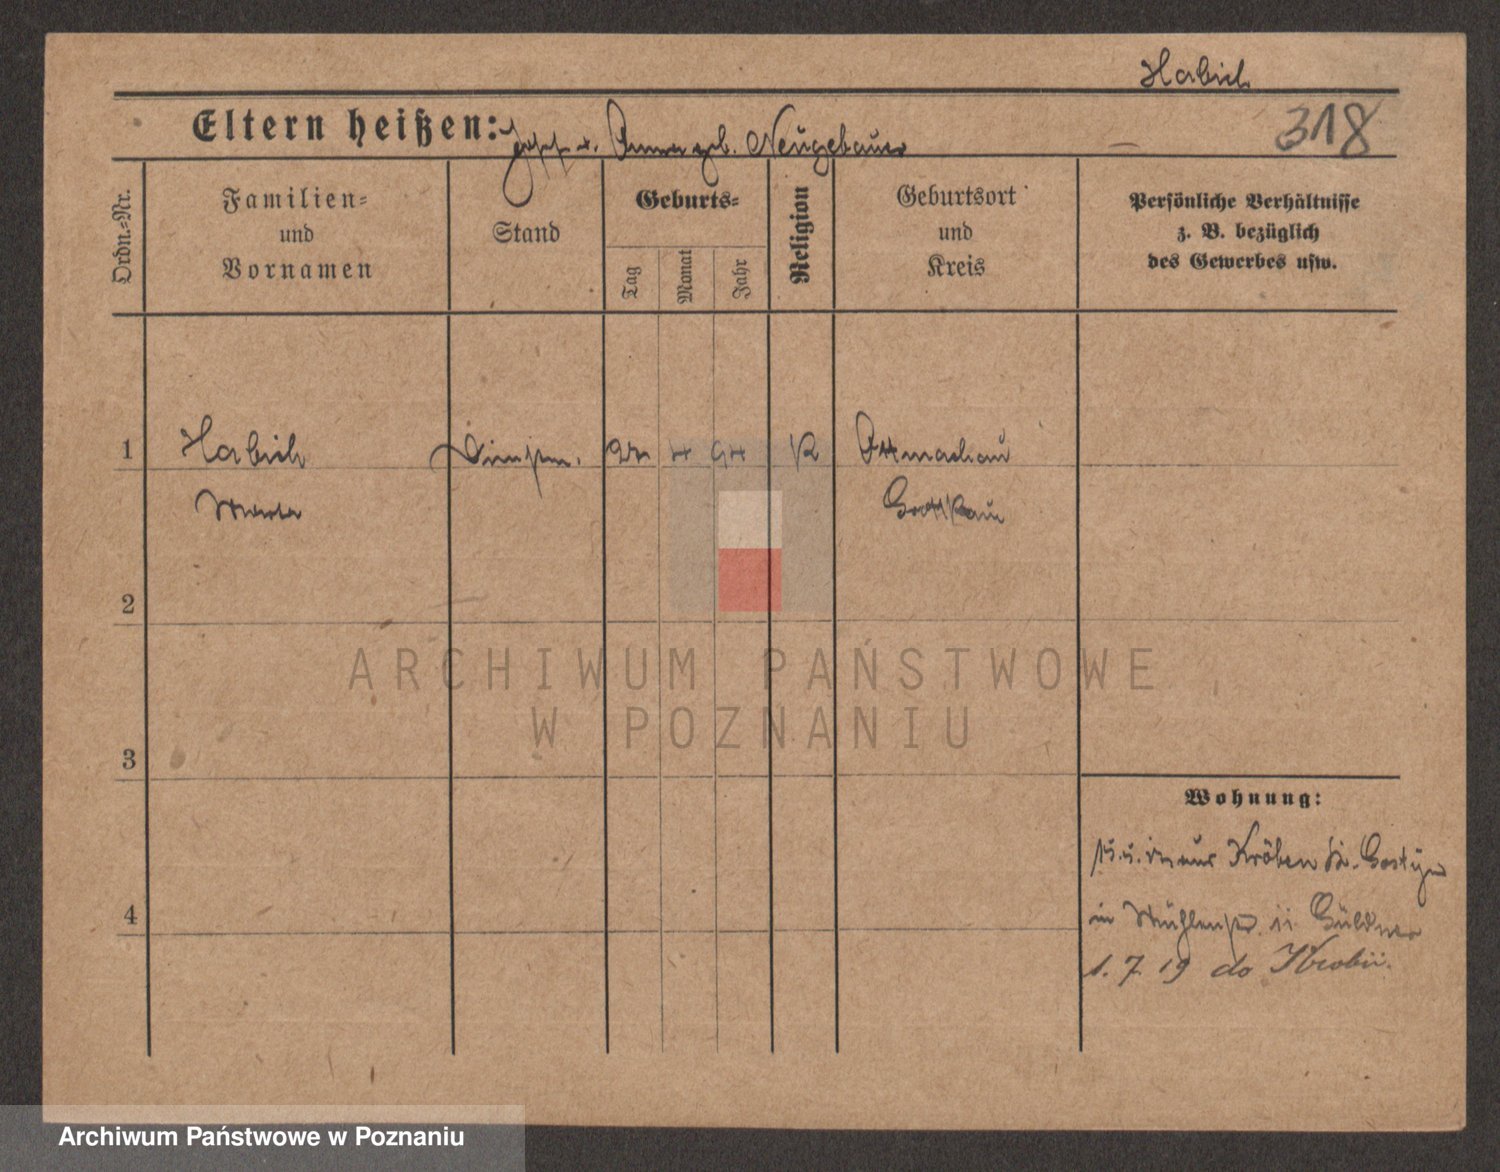 Habich
318
Eltern heißen: Josef u. Anna geb. Neugebauer
Ordn.-Nr.
Familien-
und
Vornamen
Stand
Geburts-
Tag
Monat
Jahr
Religion
Geburtsort
und
Kreis
Persönliche Verhältnisse
z. B. bezüglich
des Gewerbes usw.
1
Habich
4
K
Ottmachau
Grottkau
2
ARCHIWUM PAŃSTWOWE
W POZNANIU
3
Wohnung:
aus Kröben Kr. Gostyn
4
in
1. 7. 19 do Krobii.
Archiwum Państwowe w Poznaniu